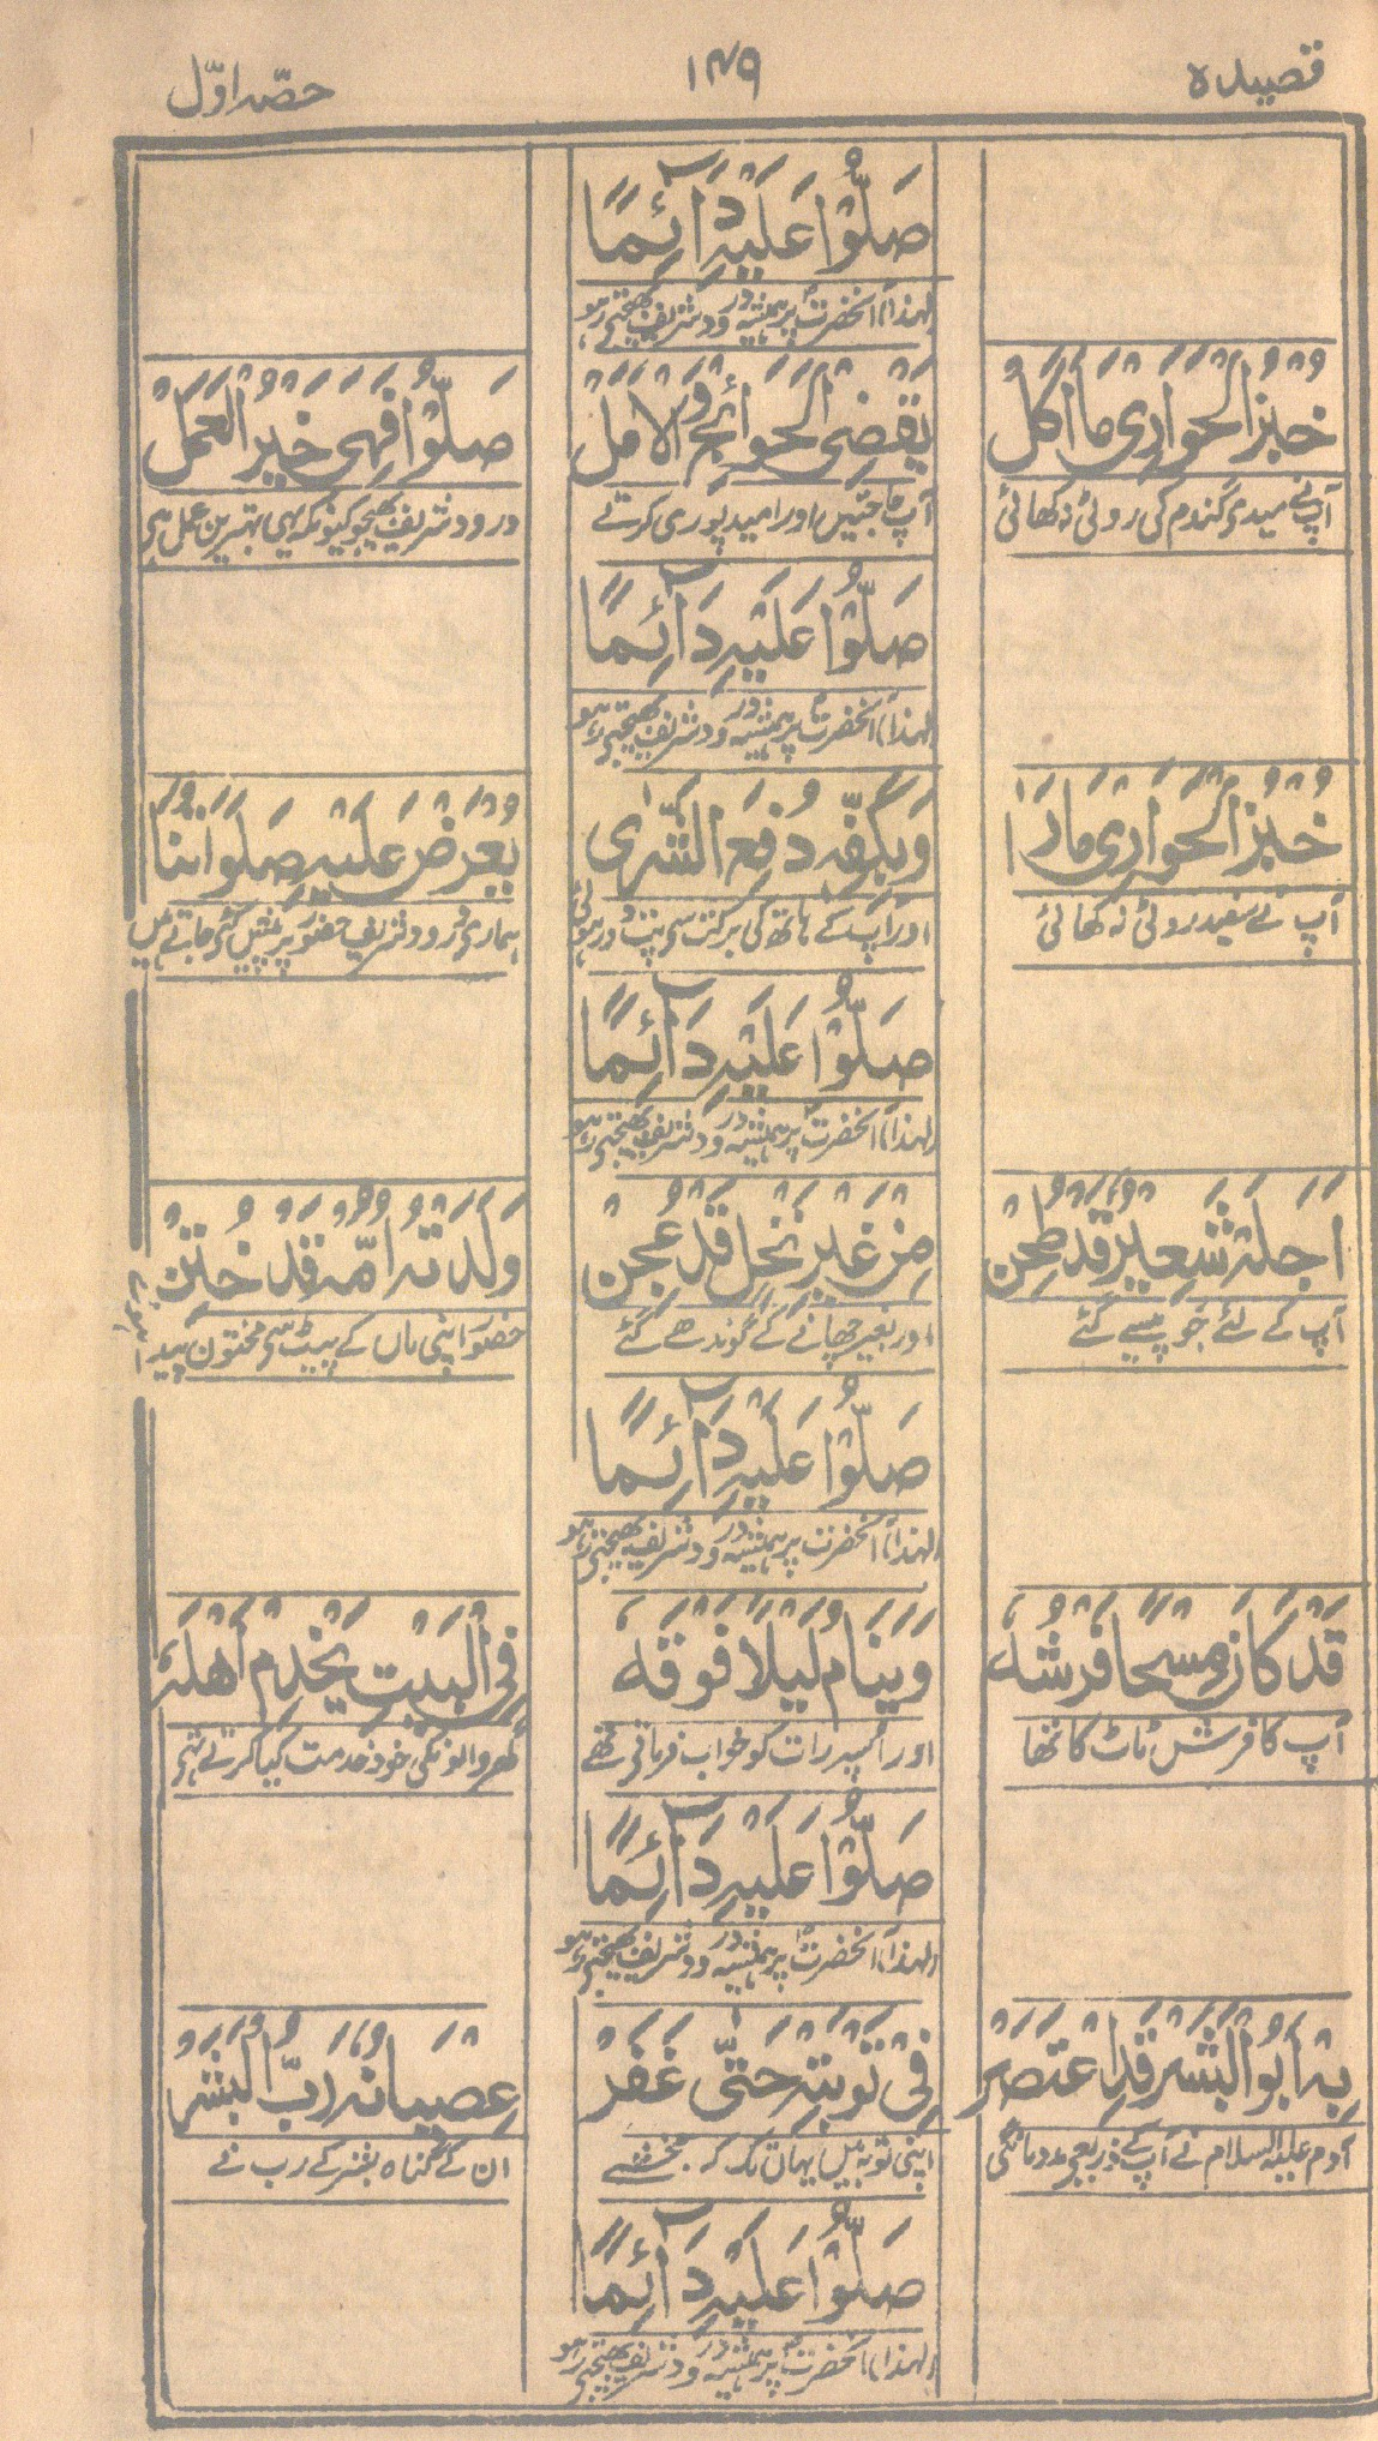 قصیدہ ۱۴۹ حصّہ اوّل
صَلُّوْا عَلَیْہِ دَآئِمًا
لہٰذا آنحضرتؐ پر ہمیشہ درود شریف بھیجتے رہو
خُبْزُ الْحَوَارِیْ مَا اَکَلْ
یَقْضِی الْحَوَائِجَ وَالْاَمَلْ
صَلُّوْا فَہِیَ خَیْرُ الْعَمَلْ
آپ نے میدۂ گندم کی روٹی نہ کھائی
آپ حاجتیں اور امید پوری کرتے
درود شریف بھیجو کیونکہ یہی بہترین عمل ہے
صَلُّوْا عَلَیْہِ دَآئِمًا
لہٰذا آنحضرتؐ پر ہمیشہ درود شریف بھیجتے رہو
خُبْزُ الْحَوَارِیْ مَا رَاٰ
وَبِکَفِّہٖ دُفِعَ الشَّرٰی
یُعْرَضْ عَلَیْہِ صَلَوٰاتُنَا
آپ نے سفید روٹی نہ کھائی
اور آپ کے ہاتھ کی برکت سے پت دور ہوئی
ہماری درود شریف حضورؐ پر پیش کئے جاتے ہیں
صَلُّوْا عَلَیْہِ دَآئِمًا
لہٰذا آنحضرتؐ پر ہمیشہ درود شریف بھیجتے رہو
اَجَلَہٗ شَعِیْرٌ قَدْ طُحِنْ
مِنْ غَیْرِ نَخْلٍ قَدْ عُجِنْ
وَلَدَتْہُ اُمُّہٗ قَدْ خُتِنْ
آپ کے لئے جَو پیسے گئے
اور بغیر چھانے کے گوندھے گئے
حضورؐ اپنی ماں کے پیٹ سے مختون پیدا ہوئے
صَلُّوْا عَلَیْہِ دَآئِمًا
لہٰذا آنحضرت پر ہمیشہ درود شریف بھیجتے رہو
قَدْ کَانَ مِسْحًا فَرْشُہٗ
وَیَنَامُ لَیْلًا فَوْقَہٗ
فِی الْبَیْتِ یَخْدِمُ اَھْلَہٗ
آپ کا فرش ٹاٹ کا تھا
اور اسپر رات کو خواب فرماتے تھے
گھر والونکی خود خدمت کیا کرتے تھے
صَلُّوْا عَلَیْہِ دَآئِمًا
لہٰذا آنحضرتؐ پر ہمیشہ درود شریف بھیجتے رہو
بِہٖ اَبُو الْبَشَرِ قَدِ اعْتَصَرْ
فِیْ تَوْبَتِہٖ حَتّٰی غَفَرْ
عِصْیَانَہٗ رَبُّ الْبَشَرْ
آدم علیہ السلام نے آپ کے ذریعے مدد مانگی
اپنی توبہ میں یہاں تک کہ بخشے
ان کے گناہ بشر کے رب نے
صَلُّوْا عَلَیْہِ دَآئِمًا
لہٰذا آنحضرتؐ پر ہمیشہ درود شریف بھیجتے رہو